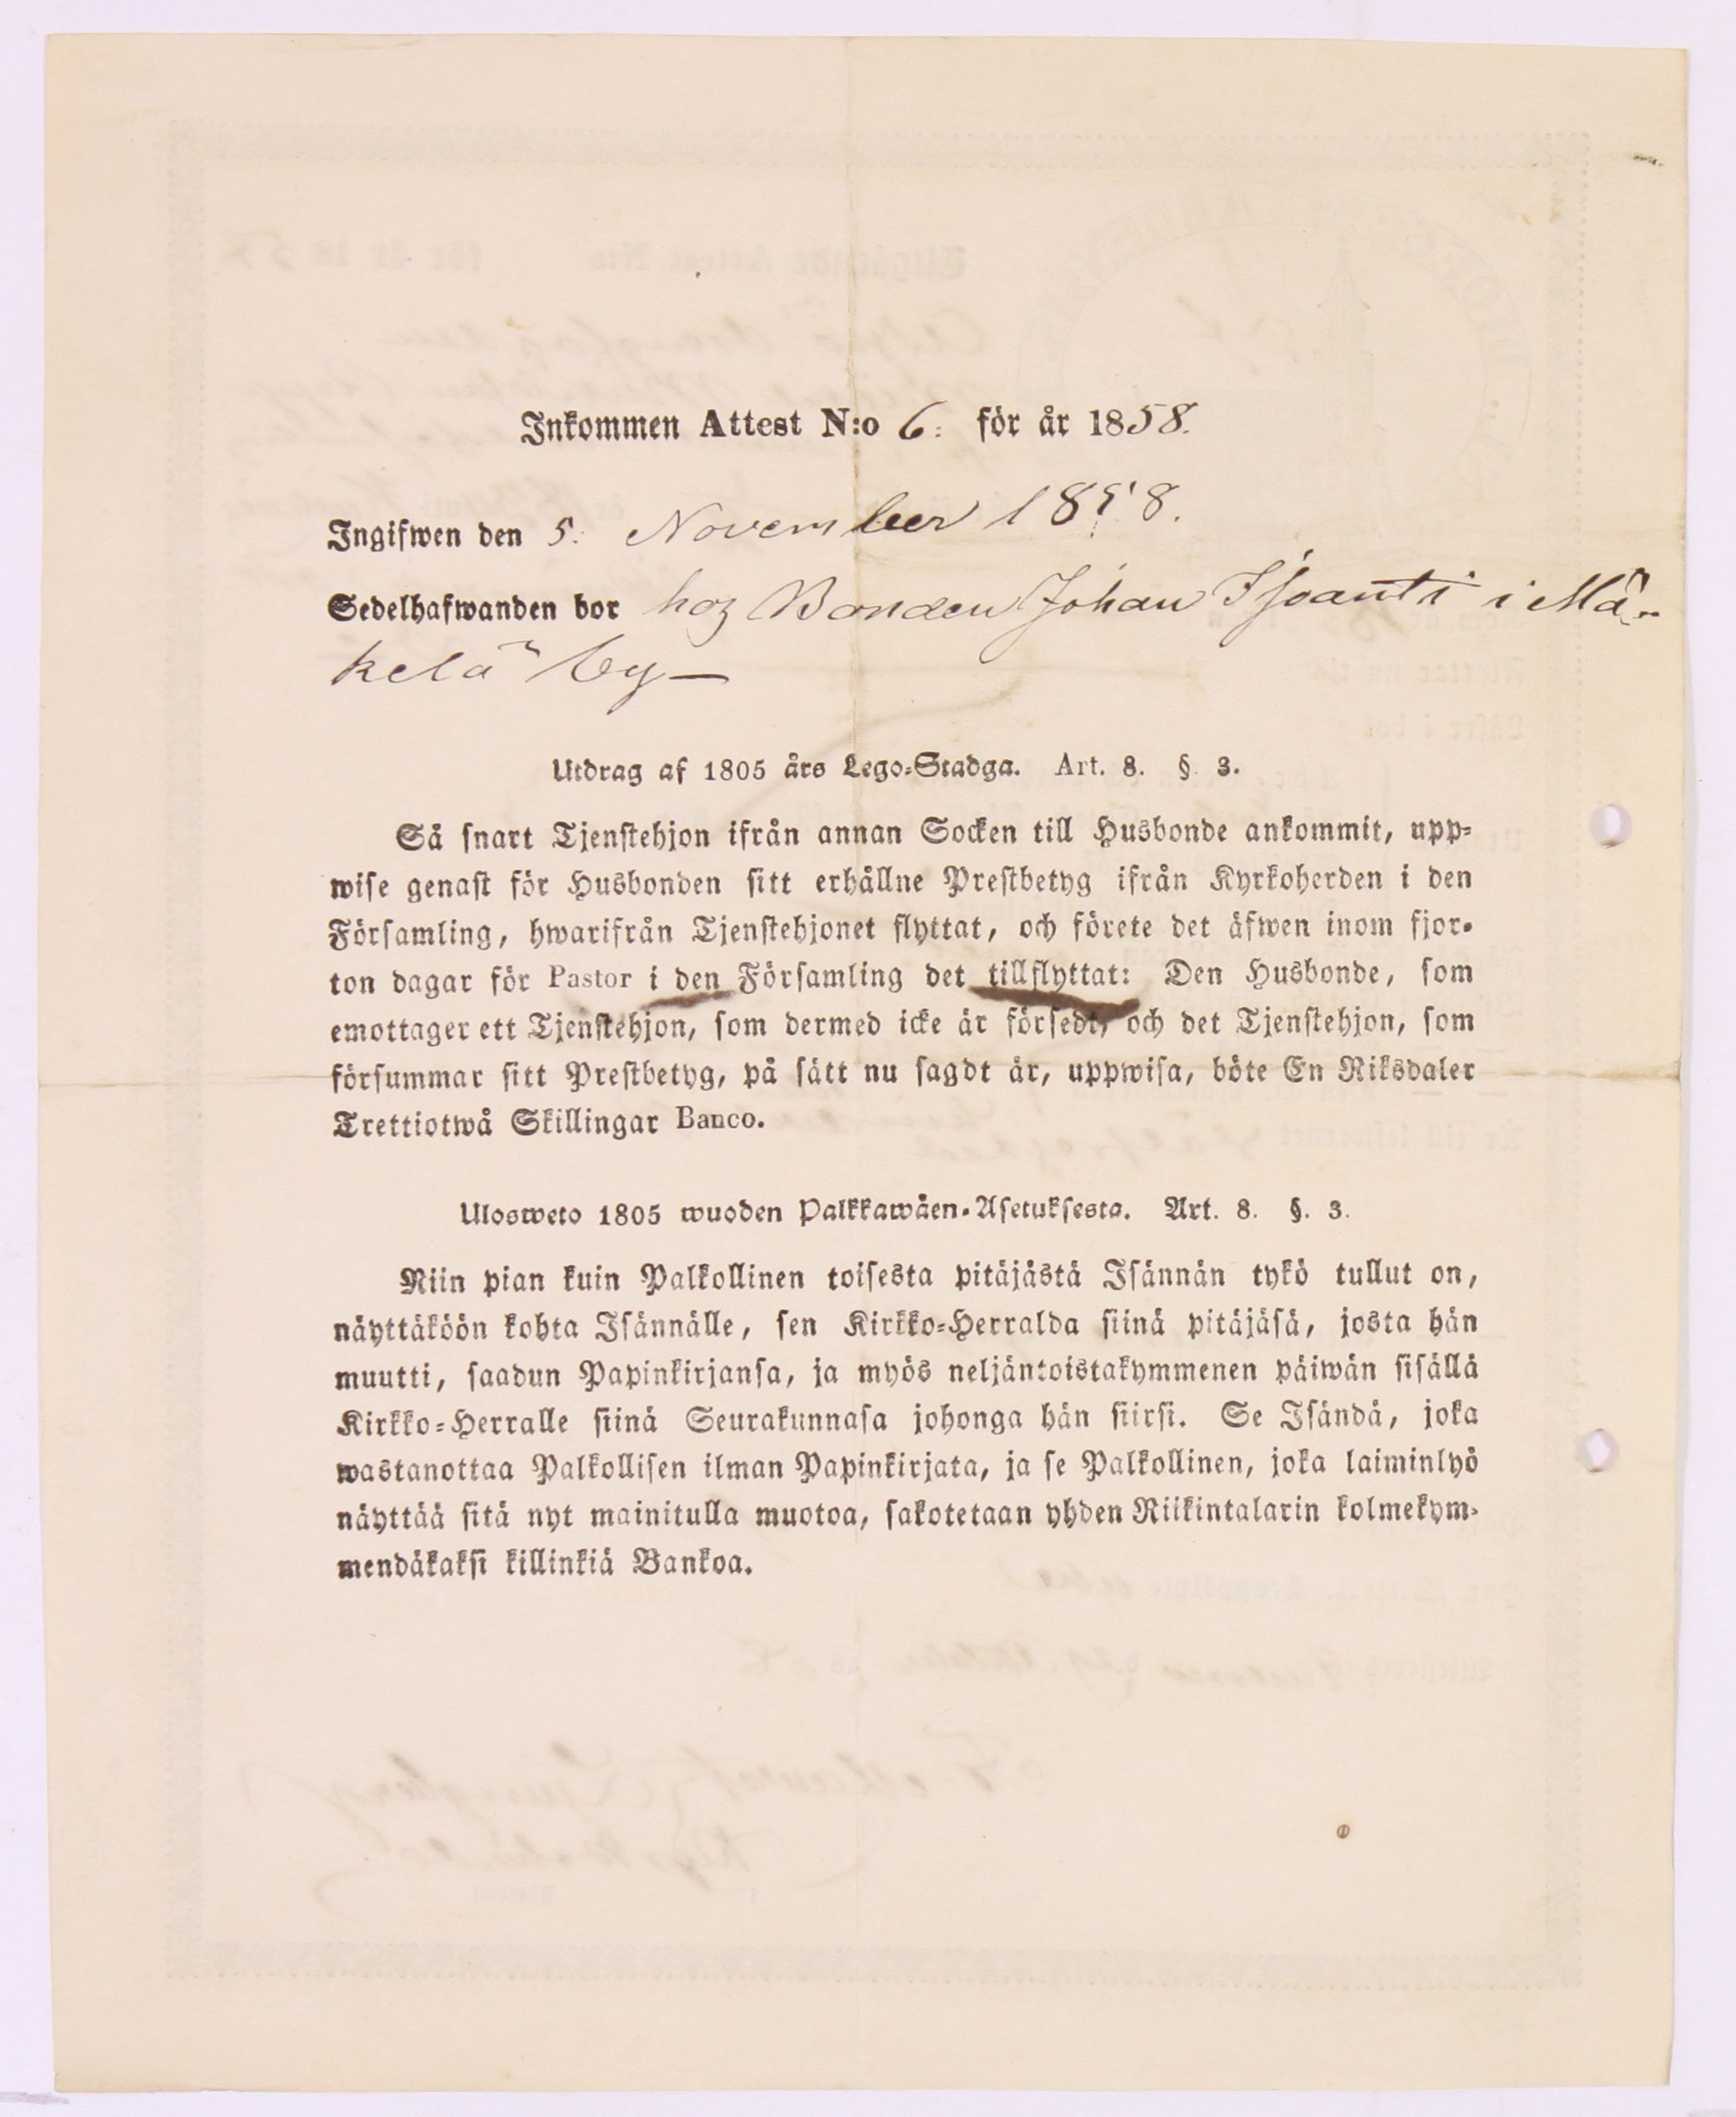 Inkommen Attest N:o 6: för år 1858.
Ingifwen den 5. November 1858.
Sedelhafwanden bor hoz Bonden Johan Isoantti i Mä-
kelä by—
Utdrag af 1805 års Lego-Stadga. Art. 8. § 3.
Så snart Tjenstehjon ifrån annan Socken till Husbonde ankommit, upp-
wise genast för Husbonden sitt erhållne Prestbetyg ifrån Kyrkoherden i den
Församling, hwarifrån Tjenstehjonet flyttat, och förete det äfwen inom fjor-
ton dagar för Pastor i den Församling det tillflyttat: Den Husbonde, som
emottager ett Tjenstehjon, som dermed icke är försedt, och det Tjenstehjon, som
försummar sitt Prestbetyg, på sätt nu sagdt är, uppwisa, böte En Riksdaler
Trettiotwå Skillingar Banco.
Ulosweto 1805 wuoden Palkkawäen-Asetuksesta. Art. 8. §. 3.
Niin pian kuin Palkollinen toisesta pitäjästä Isännän tykö tullut on,
näyttäköön kohta Isännälle, sen Kirkko-Herralda siinä pitäjäsä, josta hän
muutti, saadun Papinkirjansa, ja myös neljäntoistakymmenen päiwän sisällä
Kirkko-Herralle siinä Seurakunnasa johonga hän siirsi. Se Isändä, joka
wastanottaa Palkollisen ilman Papinkirjata, ja se Palkollinen, joka laiminlyö
näyttää sitä nyt mainitulla muotoa, sakotetaan yhden Riikintalarin kolmekym-
mendäkaksi killinkiä Bankoa.